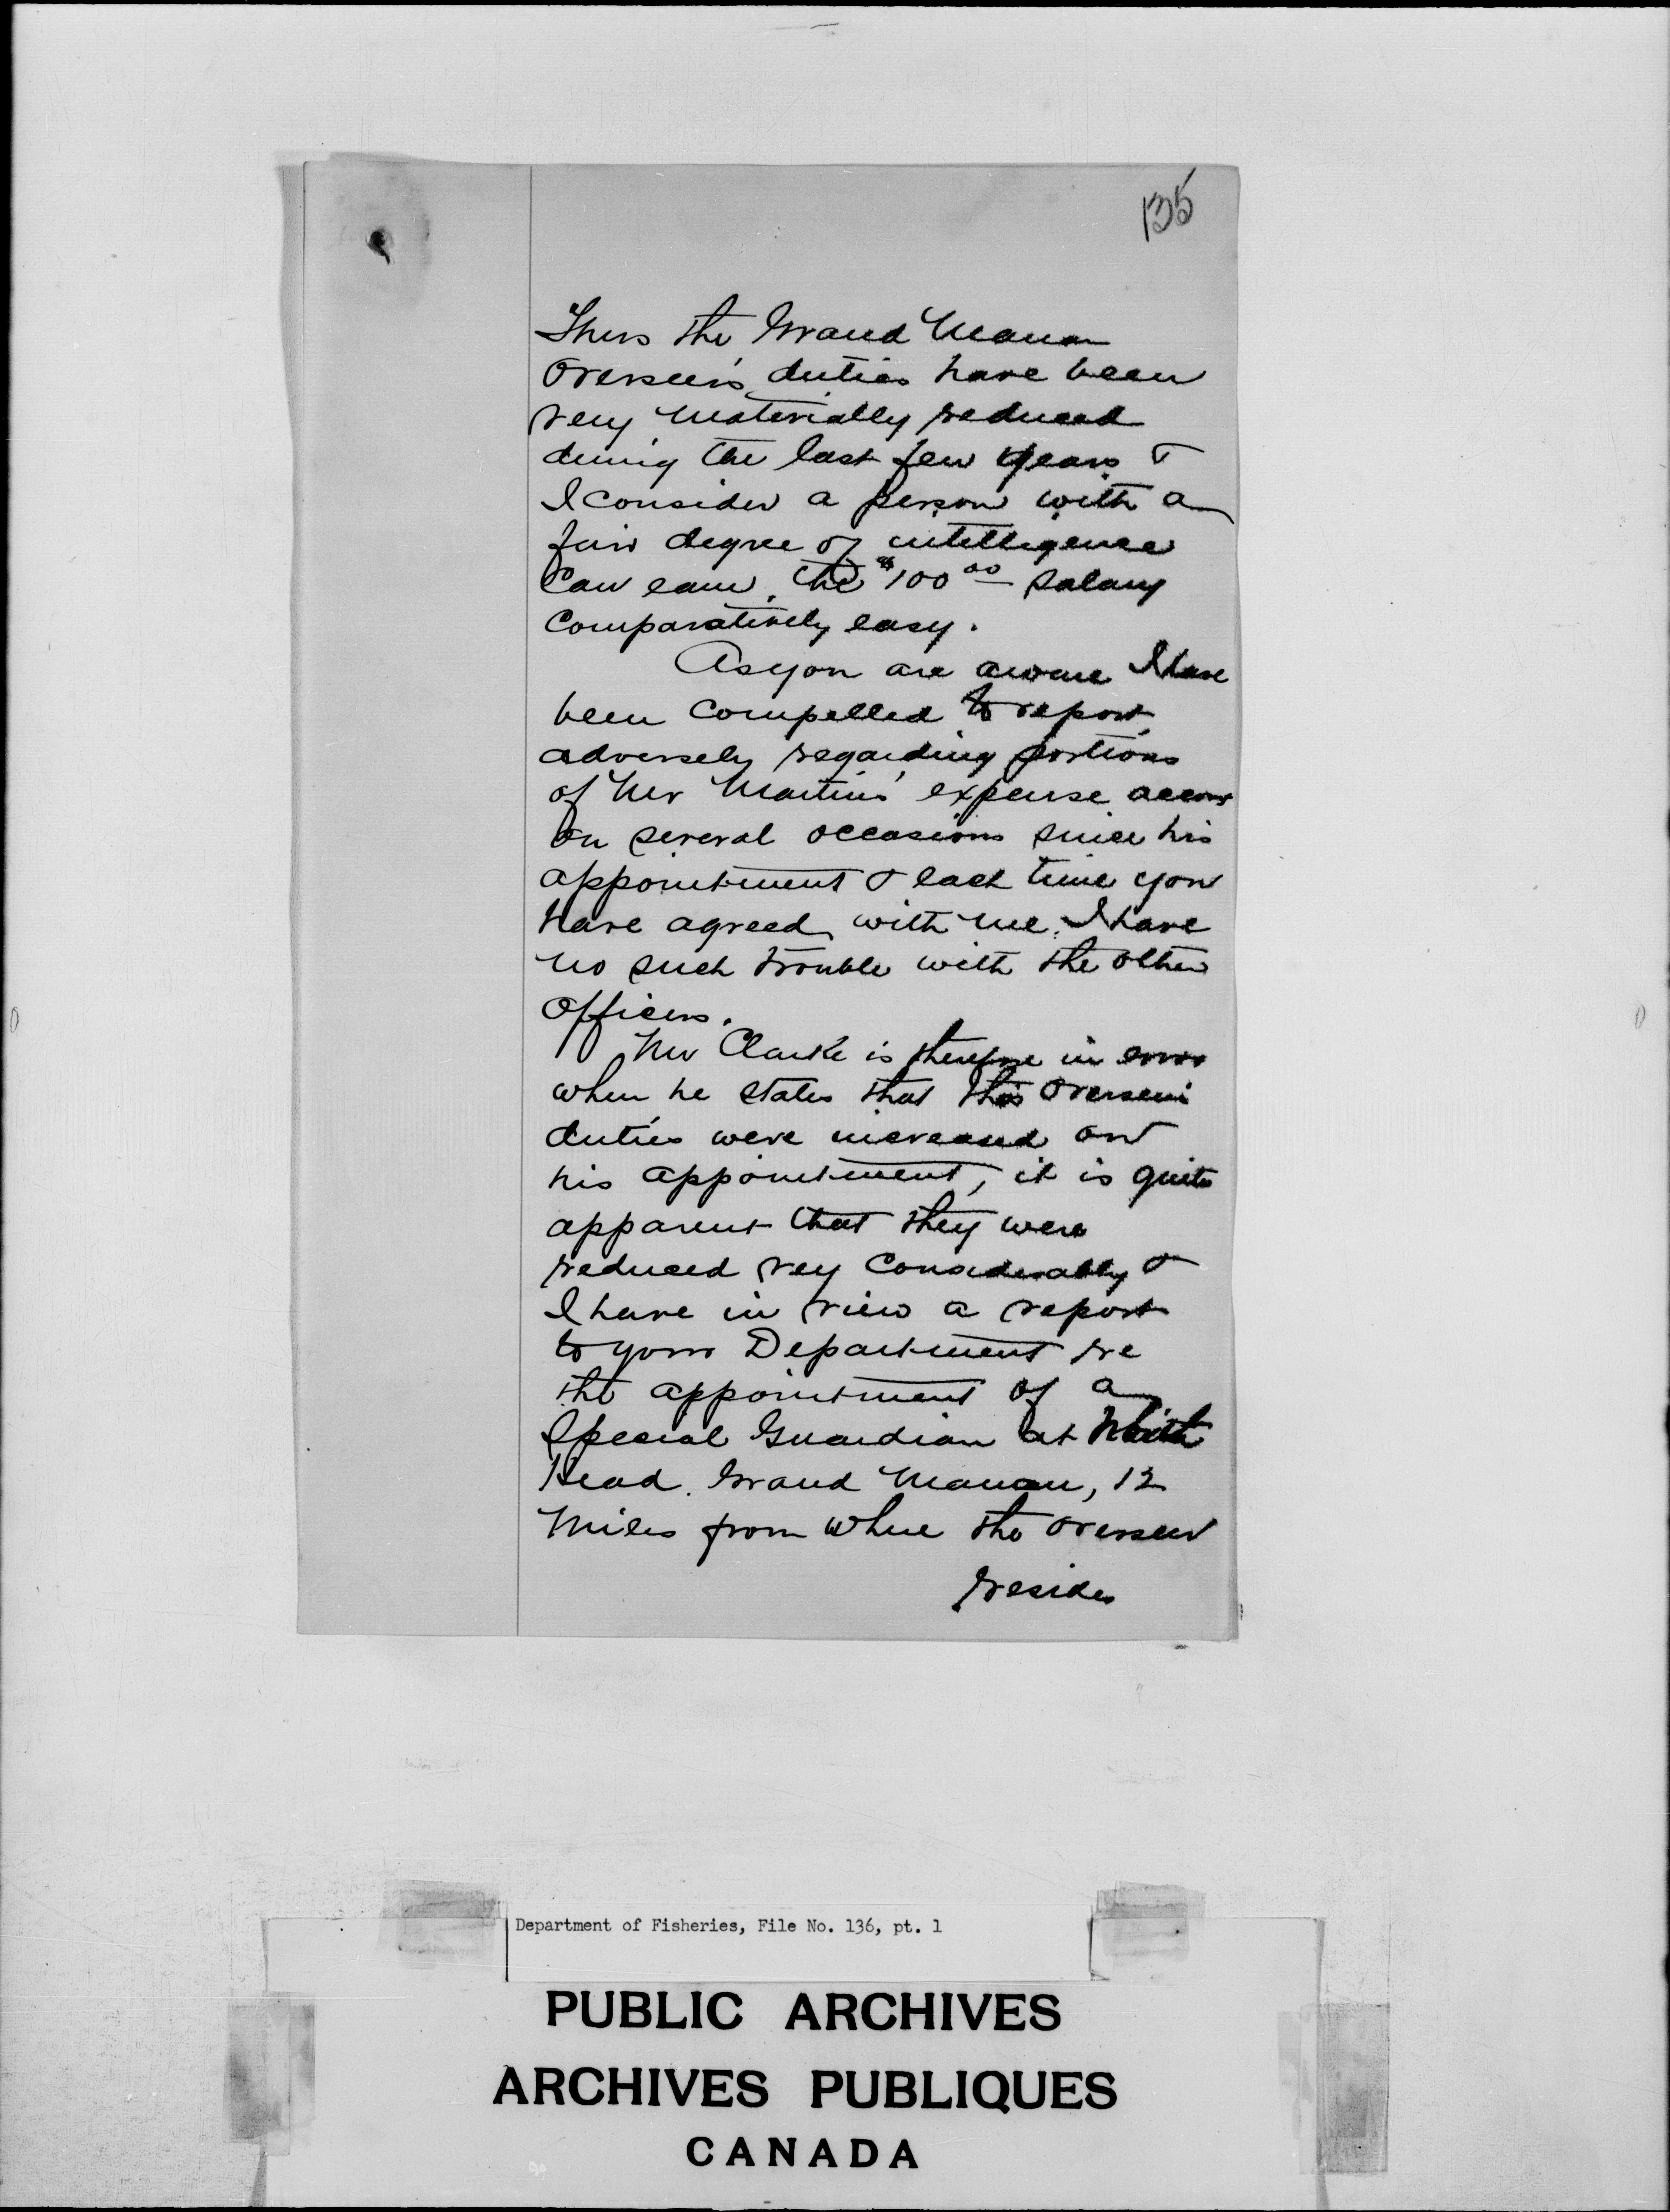 135
Thus the Grand Manan
Overseer's duties have been
very materially reduced
during the last few years &
I consider a person with a
fair degree of intelligence
can earn the $100 00 salary
comparatively easy.
As you are aware I have
been compelled to report
adversely regarding portions
of Mr Martin's expense accou
on several occasions since his
appointment & each time you
have agreed with me. I have
no such trouble with the other
officers.
Mr Clarke is therefore in error
when he states that this overseers
duties were increased on
his appointment, it is quite
apparent that they were
reduced very considerably &
I have in view a report
to your Department re
the appointment of a
Special Guardian at White
Head. Grand Manan, 12
miles from where the overseer
resides
Department of Fisheries, File No. 136, pt. 1
PUBLIC ARCHIVES
ARCHIVES PUBLIQUES
CANADA